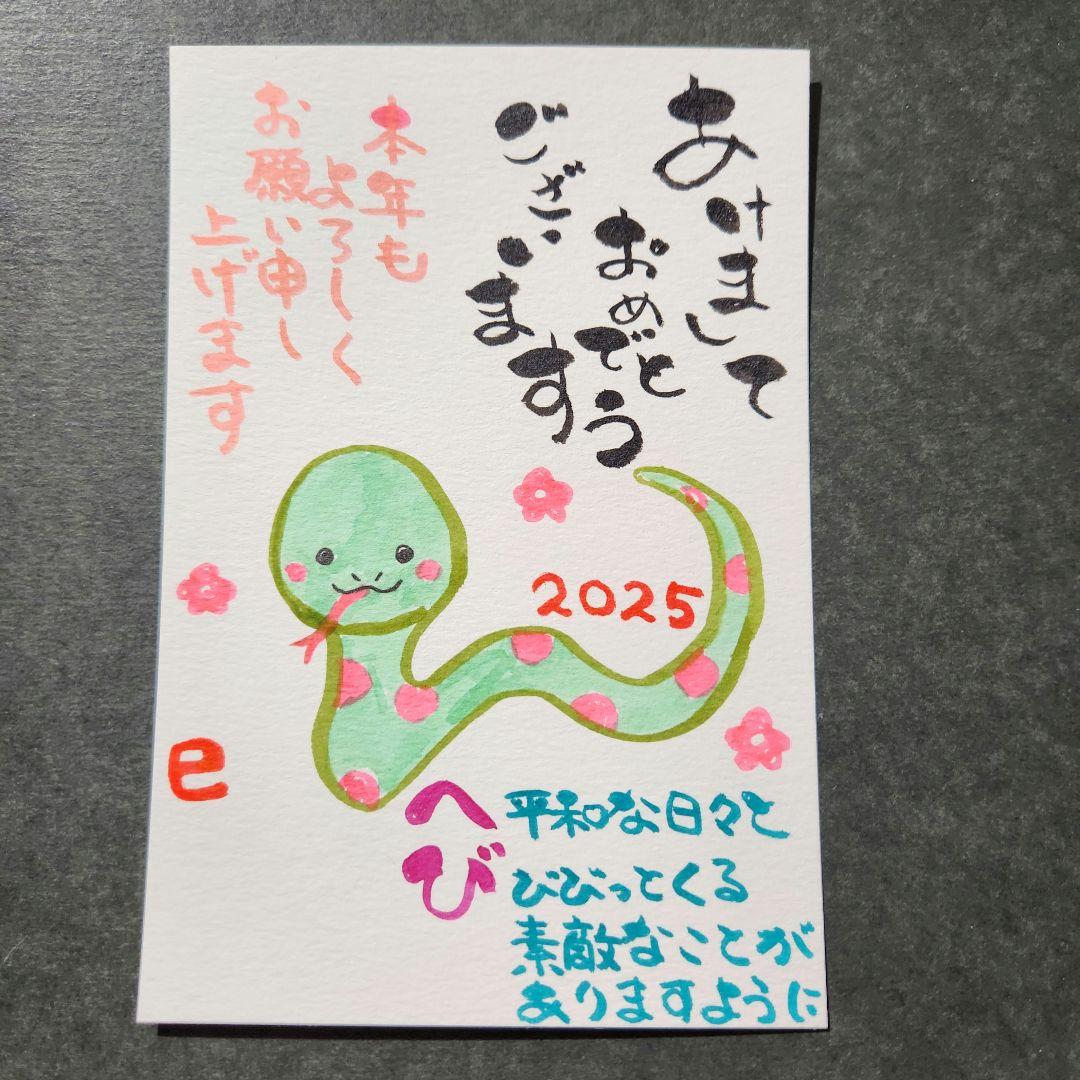 あけまして
おめでとう
ございます
本年も
よろしく
お願い申し
上げます
2025
巳
へび
平和な日々と
びびっとくる
素敵なことが
ありますように